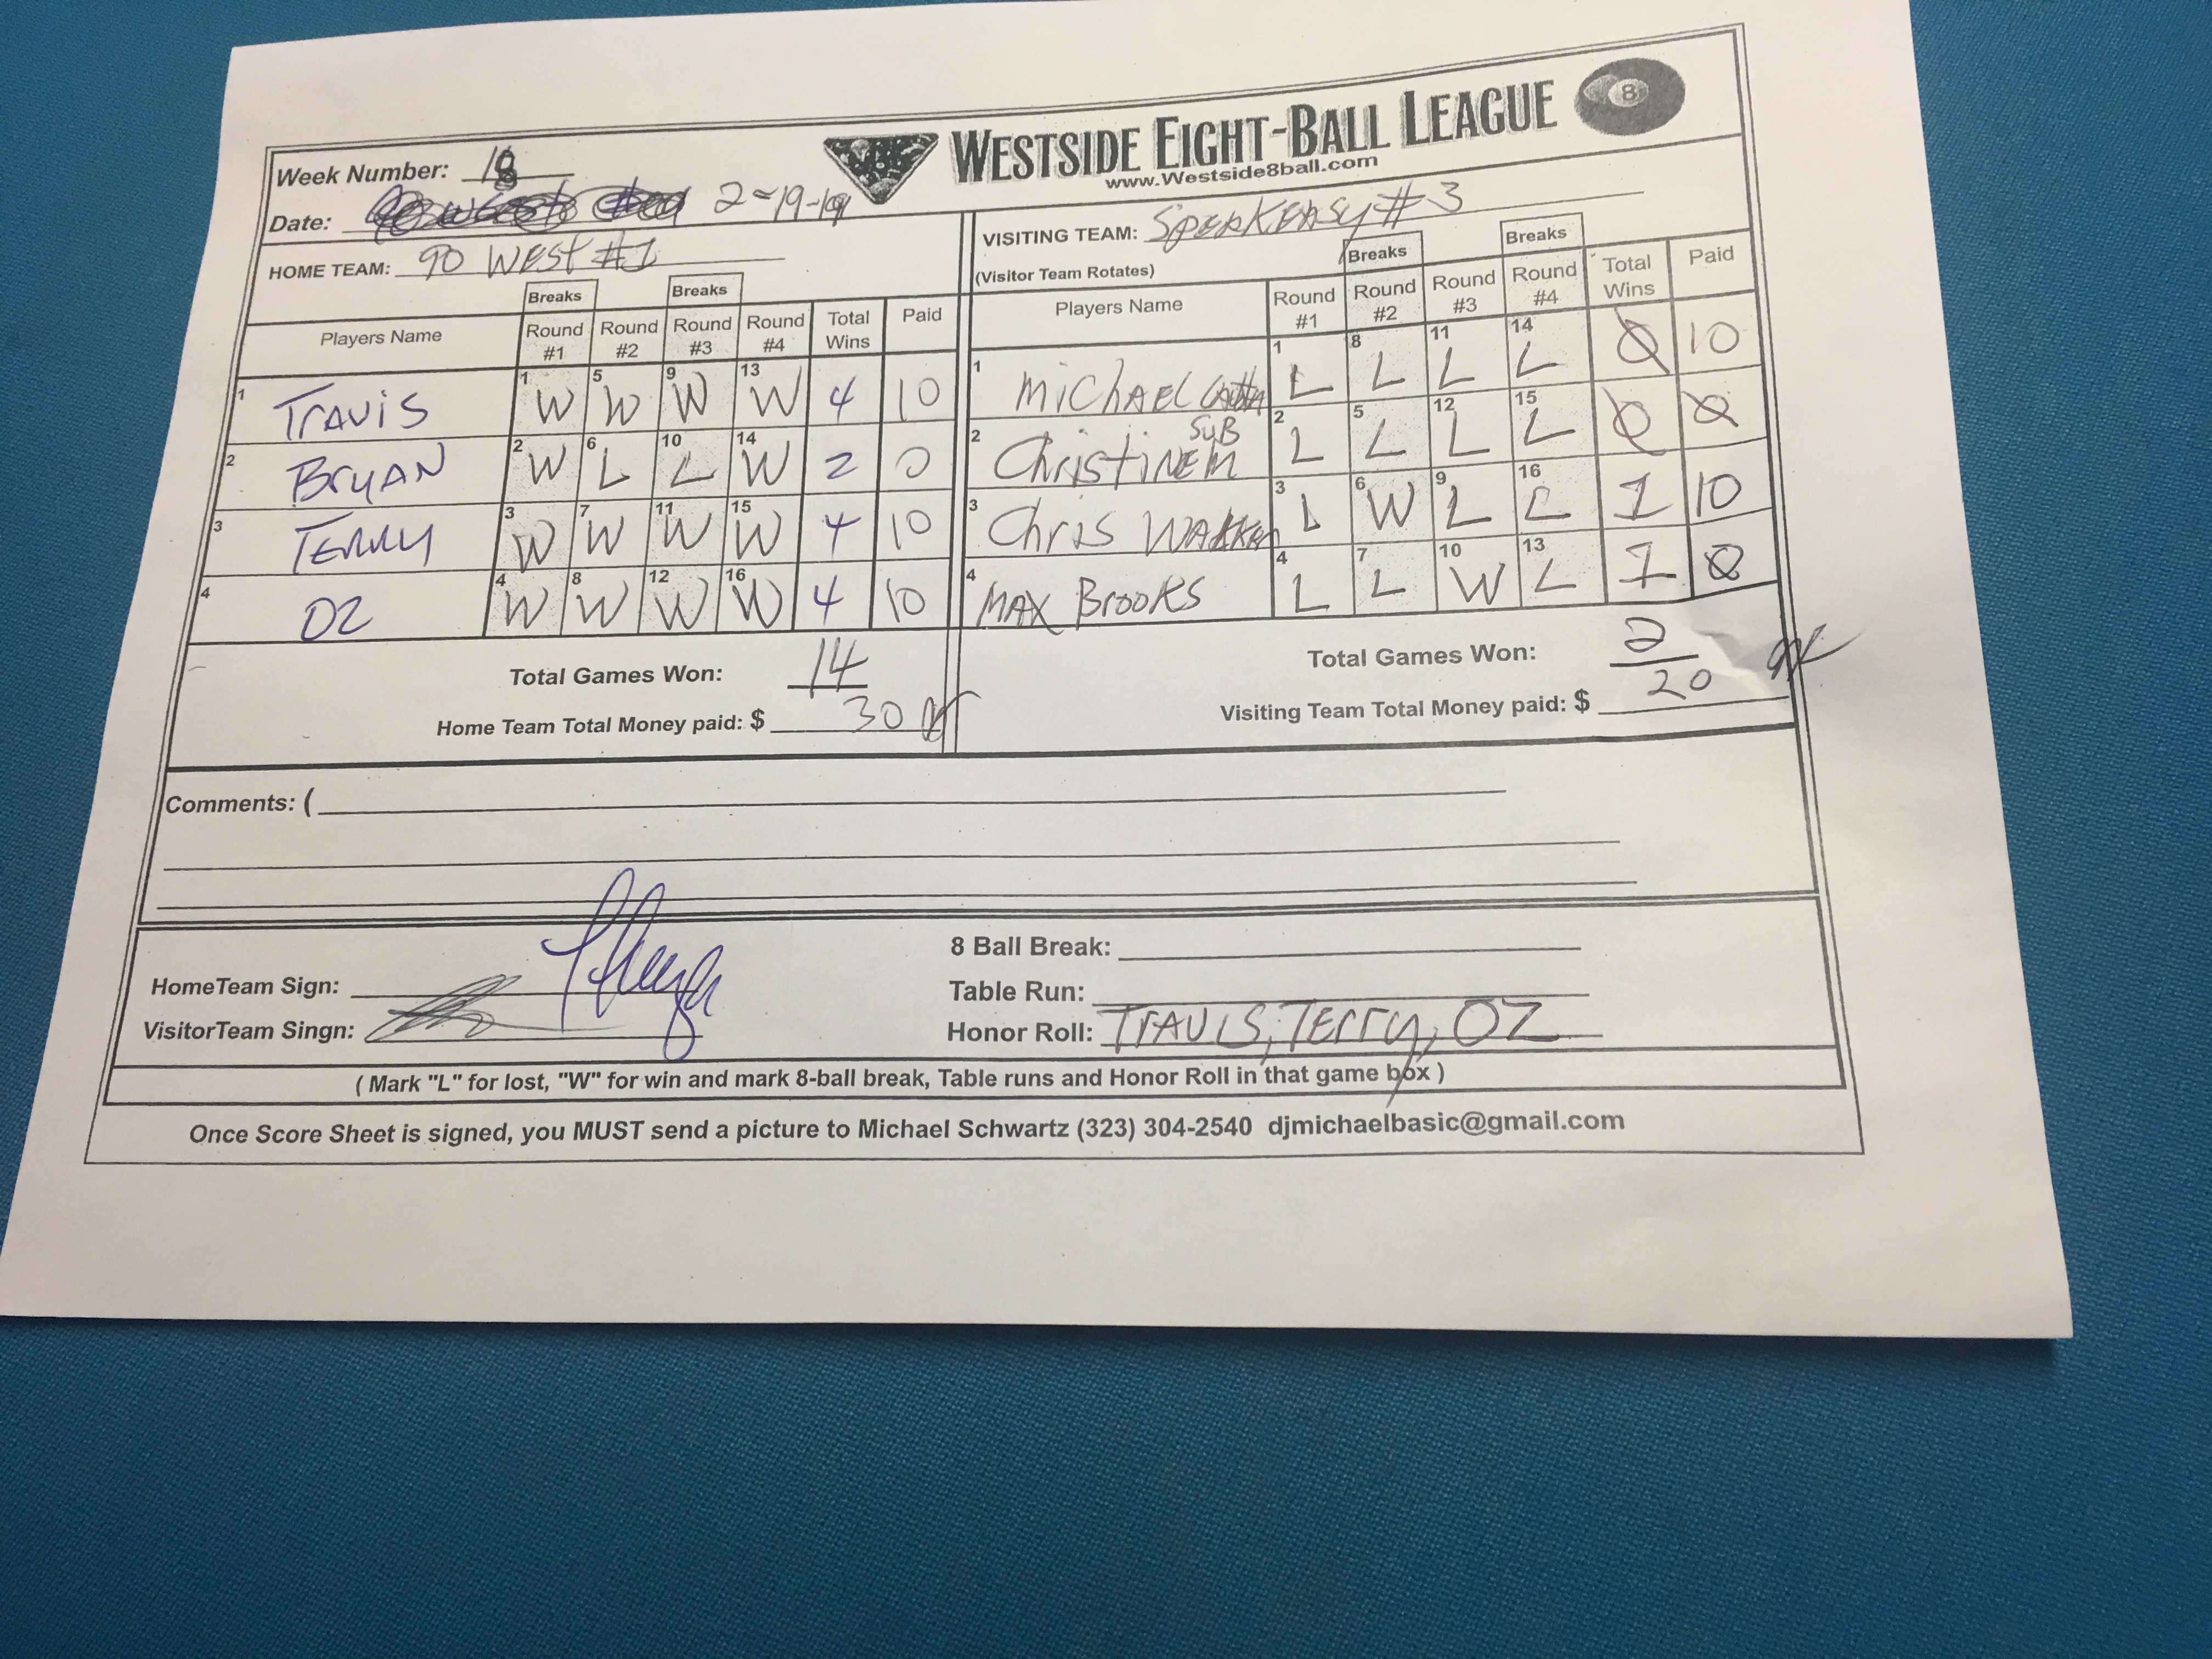 WESTSIDE EIGHT-BALL LEAGUE 8
www.Westside8ball.com
Week Number: 18
Date: 2-19-19
HOME TEAM: 90 WEST #1
VISITING TEAM: SPEAKEASY #3
(Visitor Team Rotates)
Breaks Breaks
Players Name Round #1 Round #2 Round #3 Round #4 Total Wins Paid
1 TRAVIS 1 W 5 W 9 W 13 W 4 10
2 BRYAN 2 W 6 L 10 L 14 W 2 0
3 TERRY 3 W 7 W 11 W 15 W 4 10
4 OZ 4 W 8 W 12 W 16 W 4 10
Total Games Won: 14
Home Team Total Money paid: $ 30
Breaks Breaks
Players Name Round #1 Round #2 Round #3 Round #4 Total Wins Paid
1 MICHAEL 1 L 8 L 11 L 14 L 0 10
SUB
2 Christine M 2 L 5 L 12 L 15 L 0 0
3 Chris 3 L 6 W 9 L 16 L 1 10
4 MAX Brooks 4 L 7 L 10 W 13 L 1 0
Total Games Won: 2
Visiting Team Total Money paid: $ 20
Comments: (
HomeTeam Sign:
VisitorTeam Singn:
8 Ball Break:
Table Run:
Honor Roll: TRAVIS, TERRY, OZ
( Mark "L" for lost, "W" for win and mark 8-ball break, Table runs and Honor Roll in that game box )
Once Score Sheet is signed, you MUST send a picture to Michael Schwartz (323) 304-2540 djmichaelbasic@gmail.com